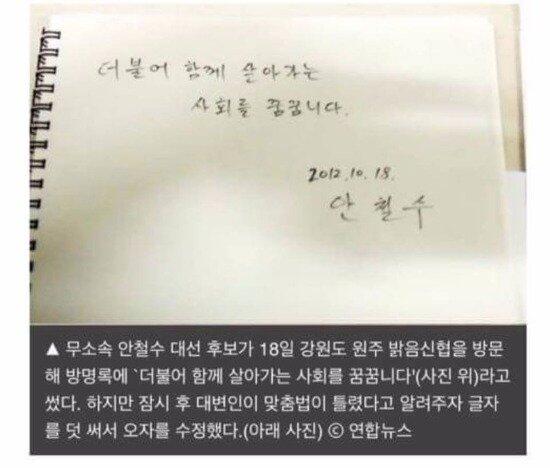 더불어 함께 살아가는
사회를 꿈꿈니다.
2012.10.18.
안철수
▲ 무소속 안철수 대선 후보가 18일 강원도 원주 밝음신협을 방문
해 방명록에 `더불어 함께 살아가는 사회를 꿈꿈니다'(사진 위)라고
썼다. 하지만 잠시 후 대변인이 맞춤법이 틀렸다고 알려주자 글자
를 덧 써서 오자를 수정했다.(아래 사진) ⓒ 연합뉴스